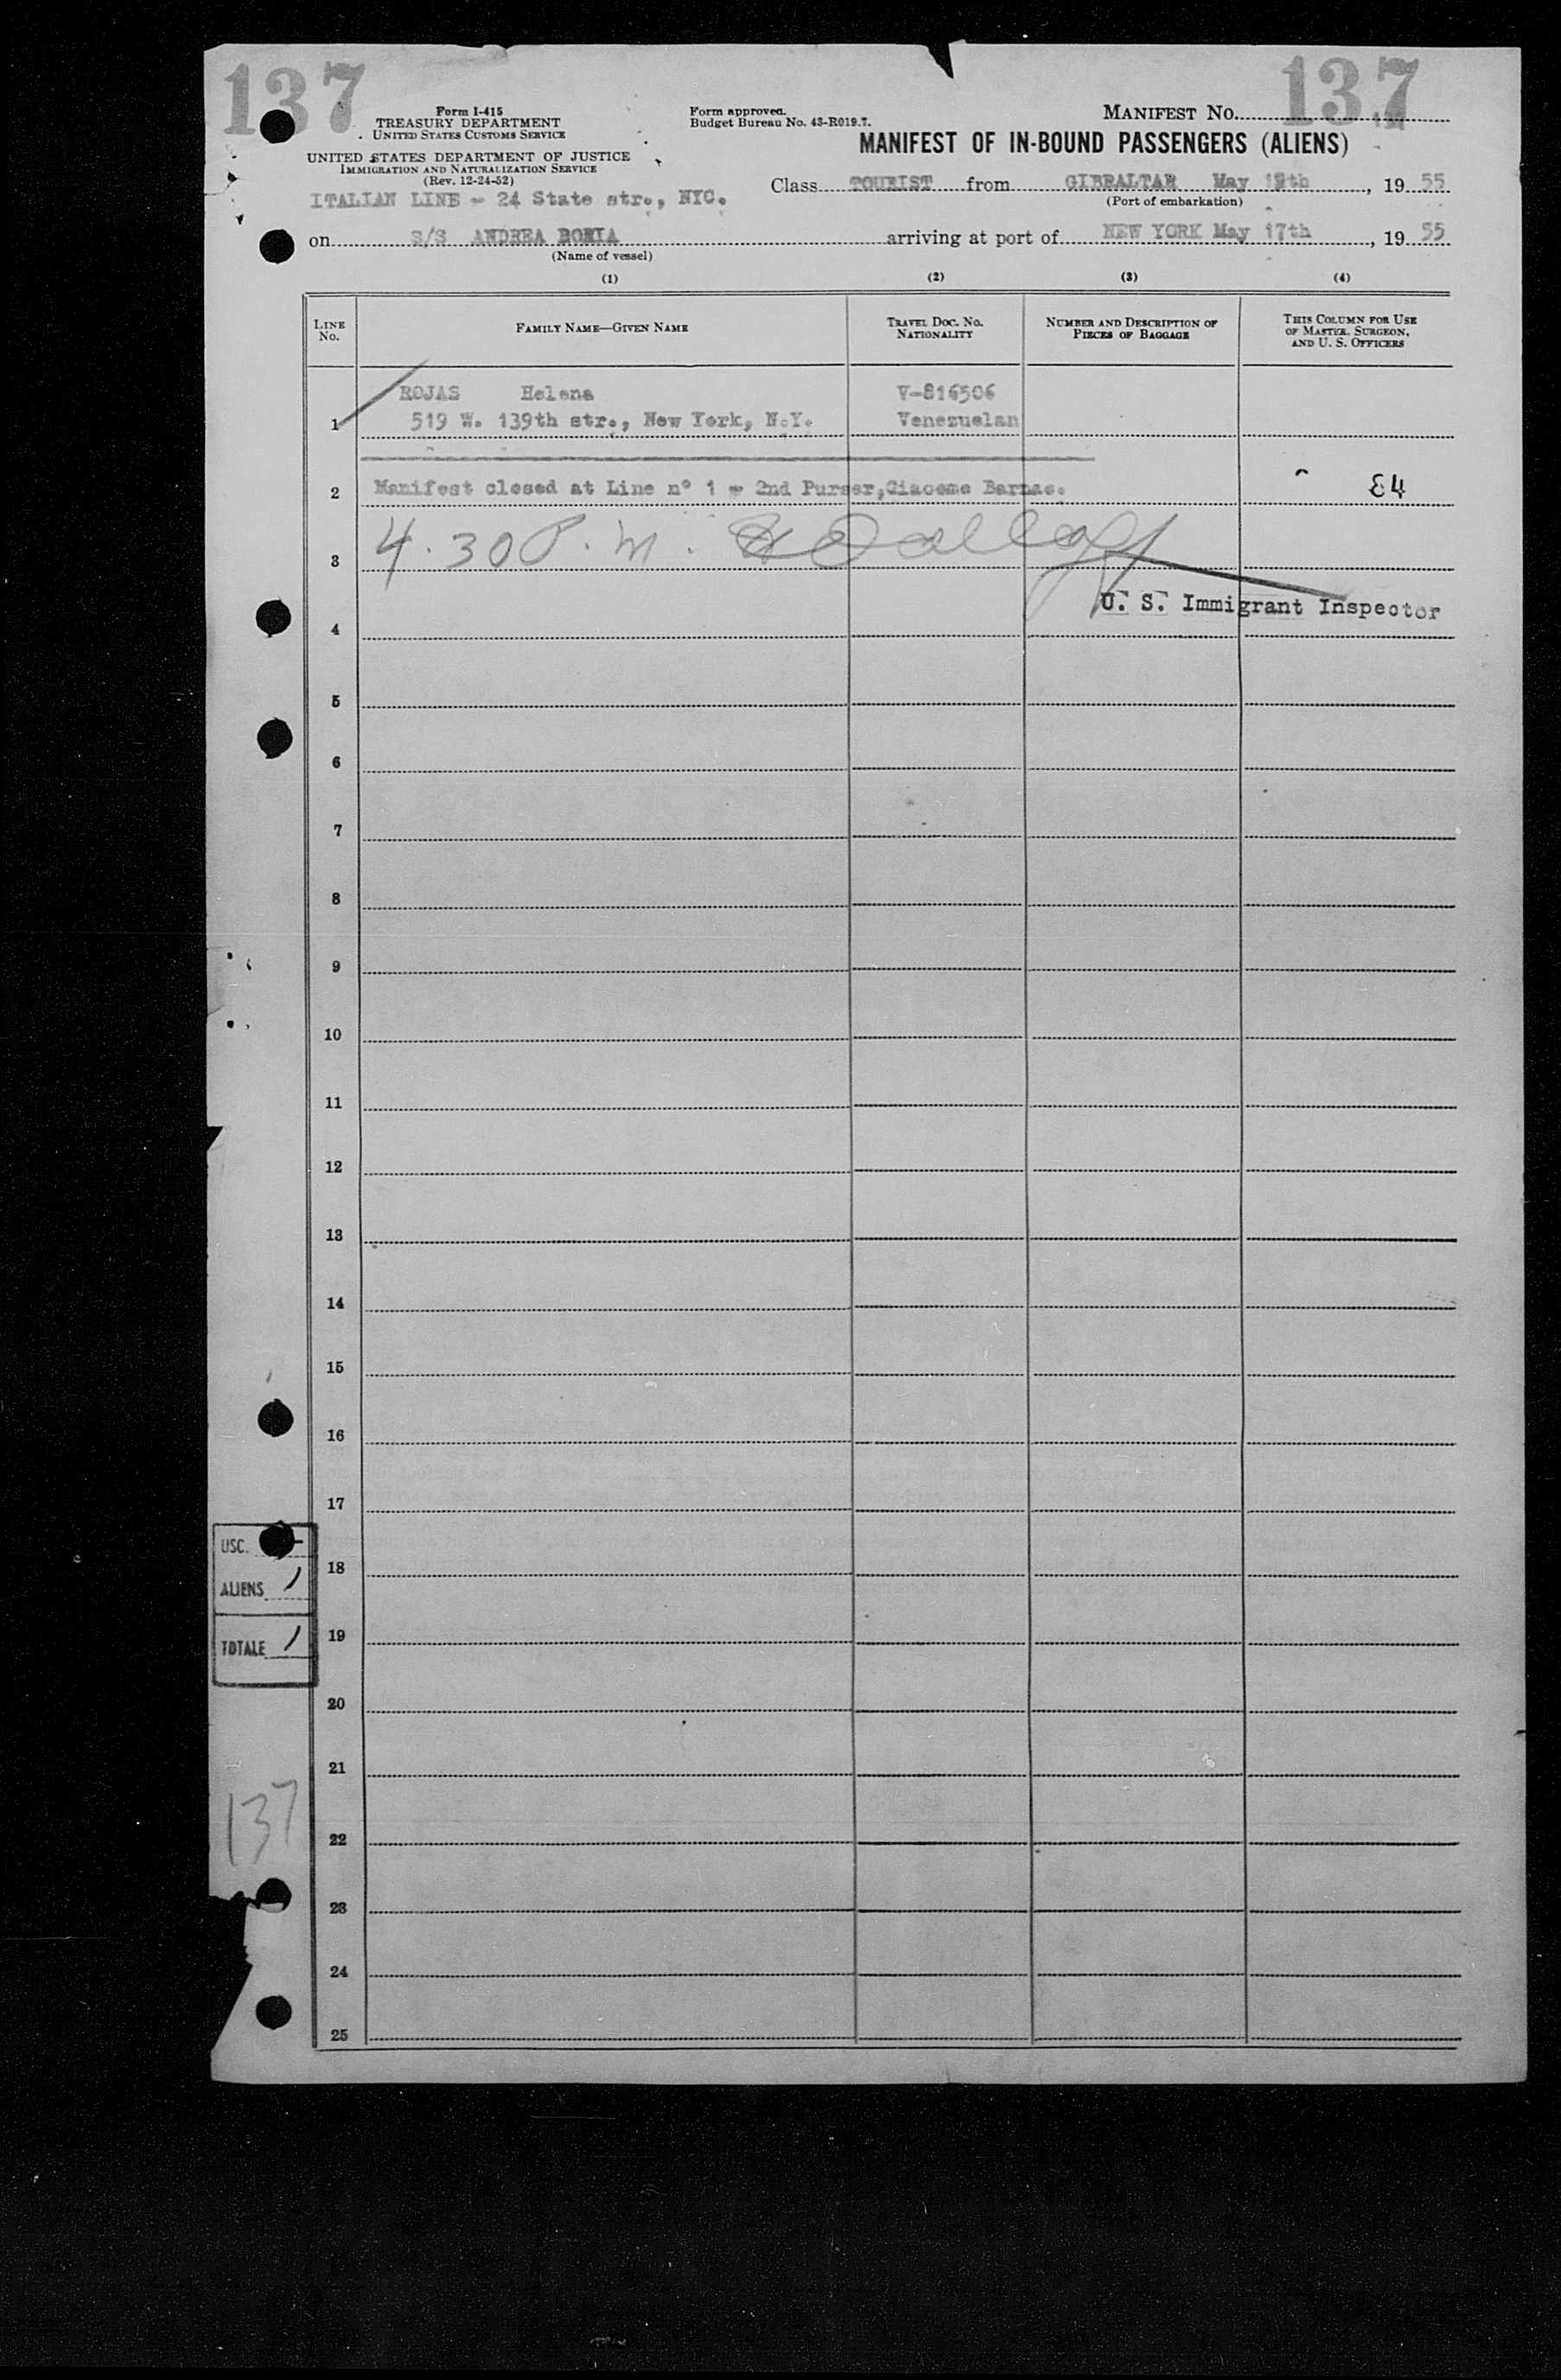 137
137
Form I-415
TREASURY DEPARTMENT
UNITED STATES CUSTOMS SERVICE
UNITED STATES DEPARTMENT OF JUSTICE
IMMIGRATION AND NATURALIZATION SERVICE
(Rev. 12-24-52)
Form approved.
Budget Bureau No. 43-R019.7.
MANIFEST NO.
MANIFEST OF IN-BOUND PASSENGERS (ALIENS)
ITALIAN LINE - 24 State str., NYC.
Class TOURIST from GIBRALTAR May 12th, 19 55
(Port of embarkation)
on S/S ANDREA DORIA arriving at port of NEW YORK May 17th, 19 55
(Name of vessel)
(1) (2) (3) (4)
LINE No. FAMILY NAME—GIVEN NAME TRAVEL DOC. NO. NATIONALITY NUMBER AND DESCRIPTION OF PIECES OF BAGGAGE THIS COLUMN FOR USE OF MASTER, SURGEON, AND U. S. OFFICERS
ROJAS Helena V-816506
1 519 W. 139th str., New York, N.Y. Venezuelan
2 Manifest closed at Line nº 1 - 2nd Purser, Giacomo 84
3 4.30 P.m.
U. S. Immigrant Inspector
4
5
6
7
8
9
10
11
12
13
14
15
16
17
USC. -
18
ALIENS 1
19
TOTALE 1
20
21
137
22
23
24
25